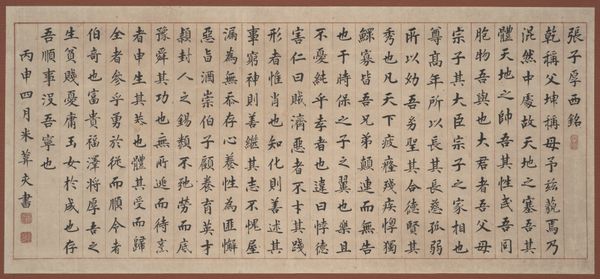 張子厚西銘
乾稱父坤稱母予茲藐焉乃
混然中處故天地之塞吾其
體天地之帥吾其性民吾同
胞物吾與也大君者吾父母
宗子其大臣宗子之家相也
尊高年所以長其長慈孤弱
所以幼吾幼聖其合德賢其
秀也凡天下疲癃殘疾惸獨
鰥寡皆吾兄弟顛連而無告
也于時保之子之翼也樂且
不憂純乎孝者也違曰悖德
害仁曰賊濟惡者不才其踐
形者惟肖也知化則善述其
事窮神則善繼其志不愧屋
漏為無忝存心養性為匪懈
惡旨酒崇伯子顧養育英才
潁封人之錫類不弛勞而底
豫舜其功也無所逃而待烹
者申生其恭也體其受而歸
全者參乎勇於從而順令者
伯奇也富貴福澤將厚吾之
生貧賤憂庸玉女於成也存
吾順事沒吾寧也
丙申四月夫書